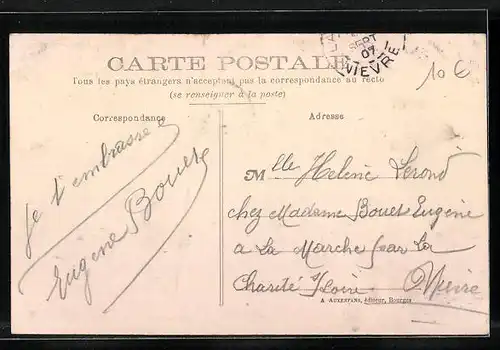 CARTE POSTALE
SEPT
07
NIEVRE
Tous les pays étrangers n'acceptant pas la correspondance au recto
(se renseigner à la poste)
10 €
Correspondance
Adresse
Je t'embrasse
Eugène Bouet
Mlle Helene Leron
chez Madame Bouet Eugène
a La Marche par La
Charité s/Loire Nievre
A AUXENFANS, éditeur, Bourges